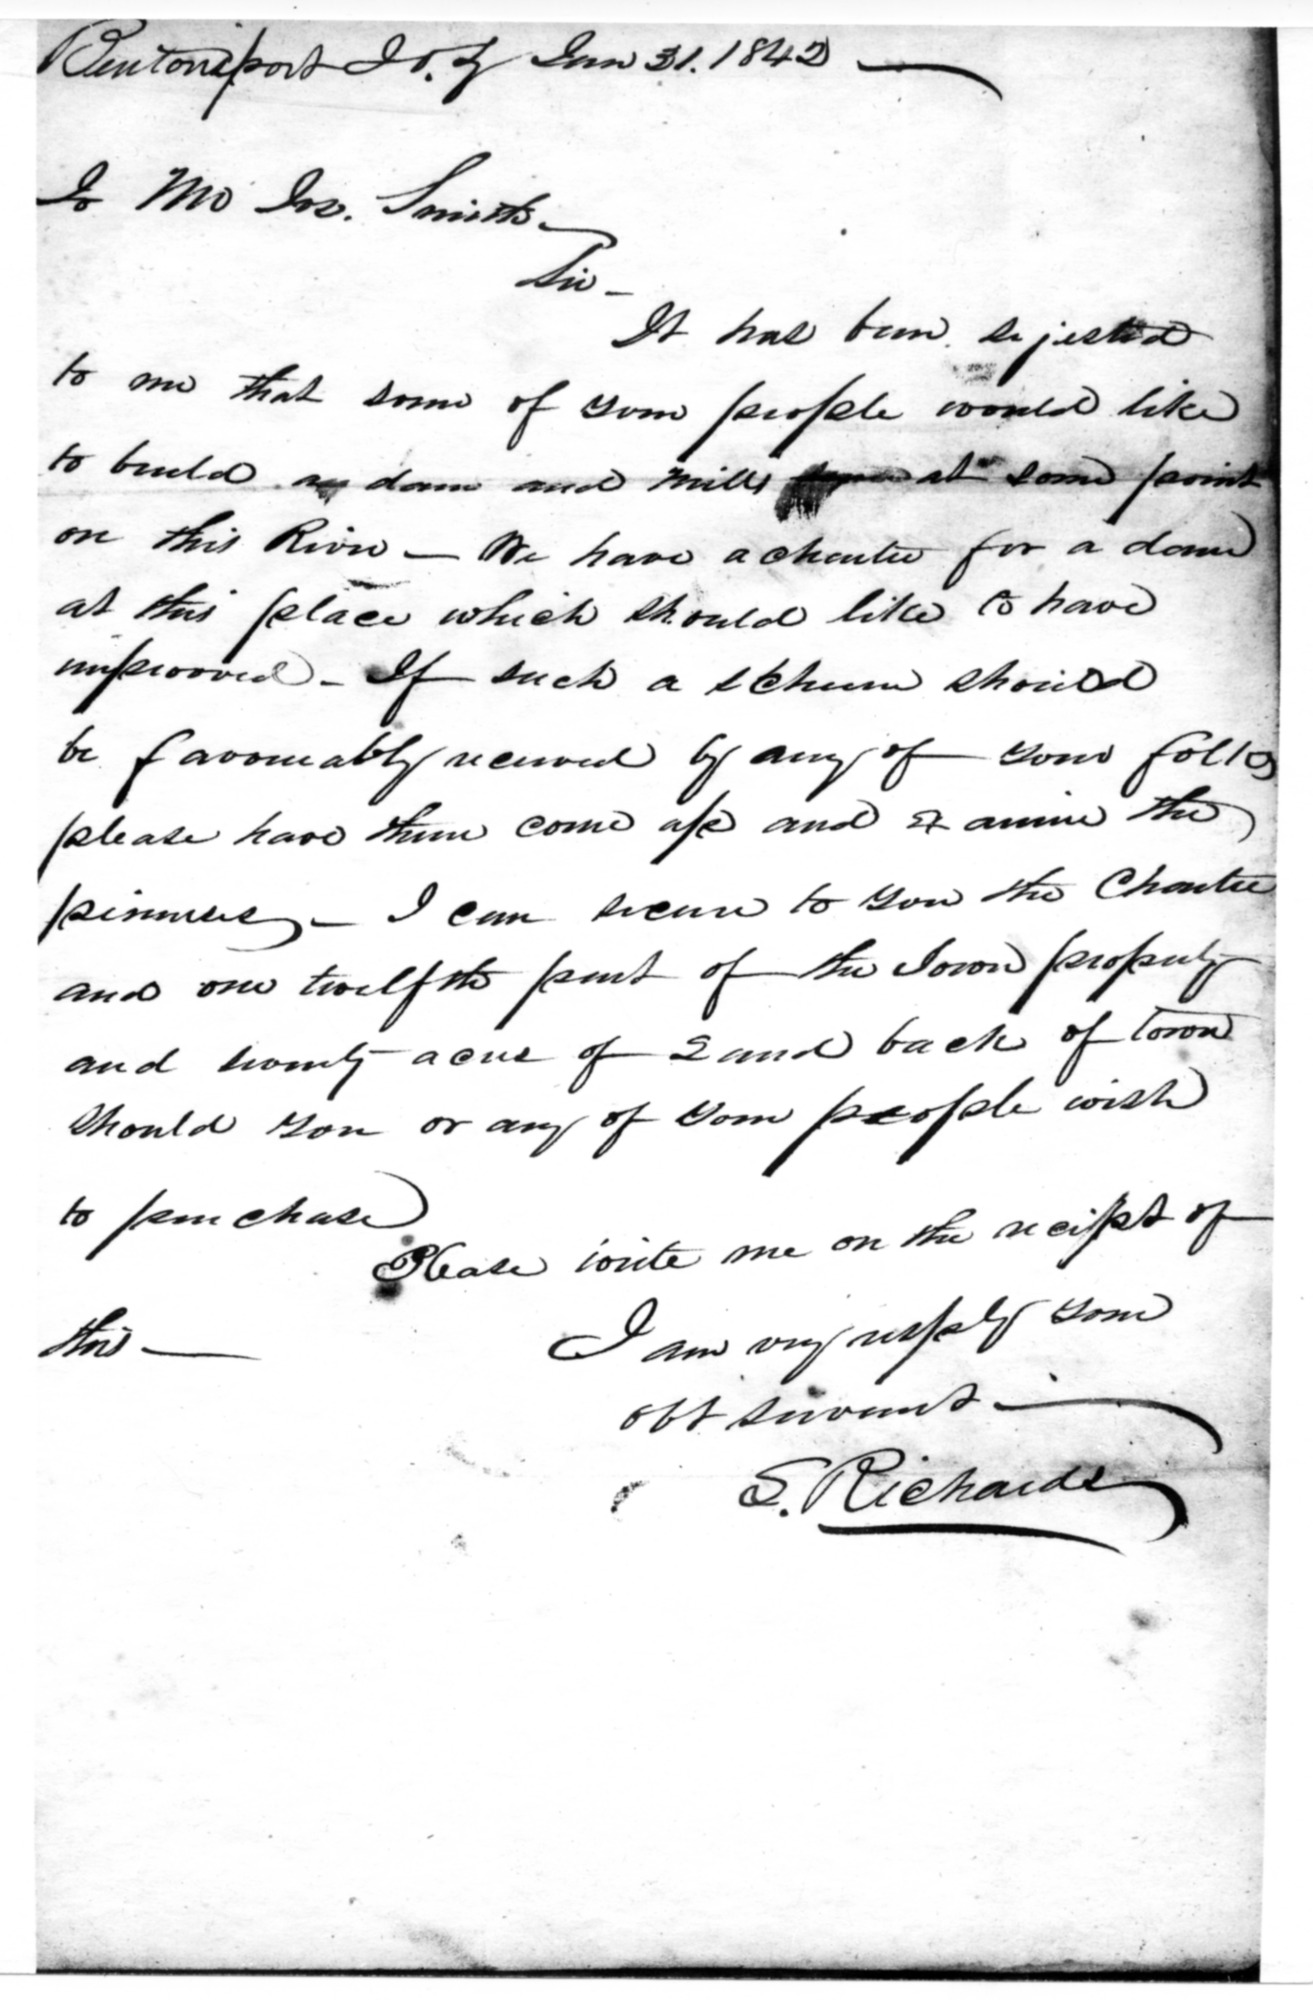 Bentonsport I.T.y Jan 31. 1842
To Mr Jos. Smith
Sir —
It has been sejested
to me that some of your people would like
to build a dam and mills at some point
on this River — We have a charter for a dam
at this place which should like to have
improoved — If such a scheme should
be favourably received by any of your folks
please have them come up and examine the
pirmises — I can secure to you the Charter
and one twelfth part of the Town property
and twenty acres of Land back of town
should you or any of your people wish
to purchase
Please write me on the recipt of
this —
I am very resply your
obt servant —
S. Richards